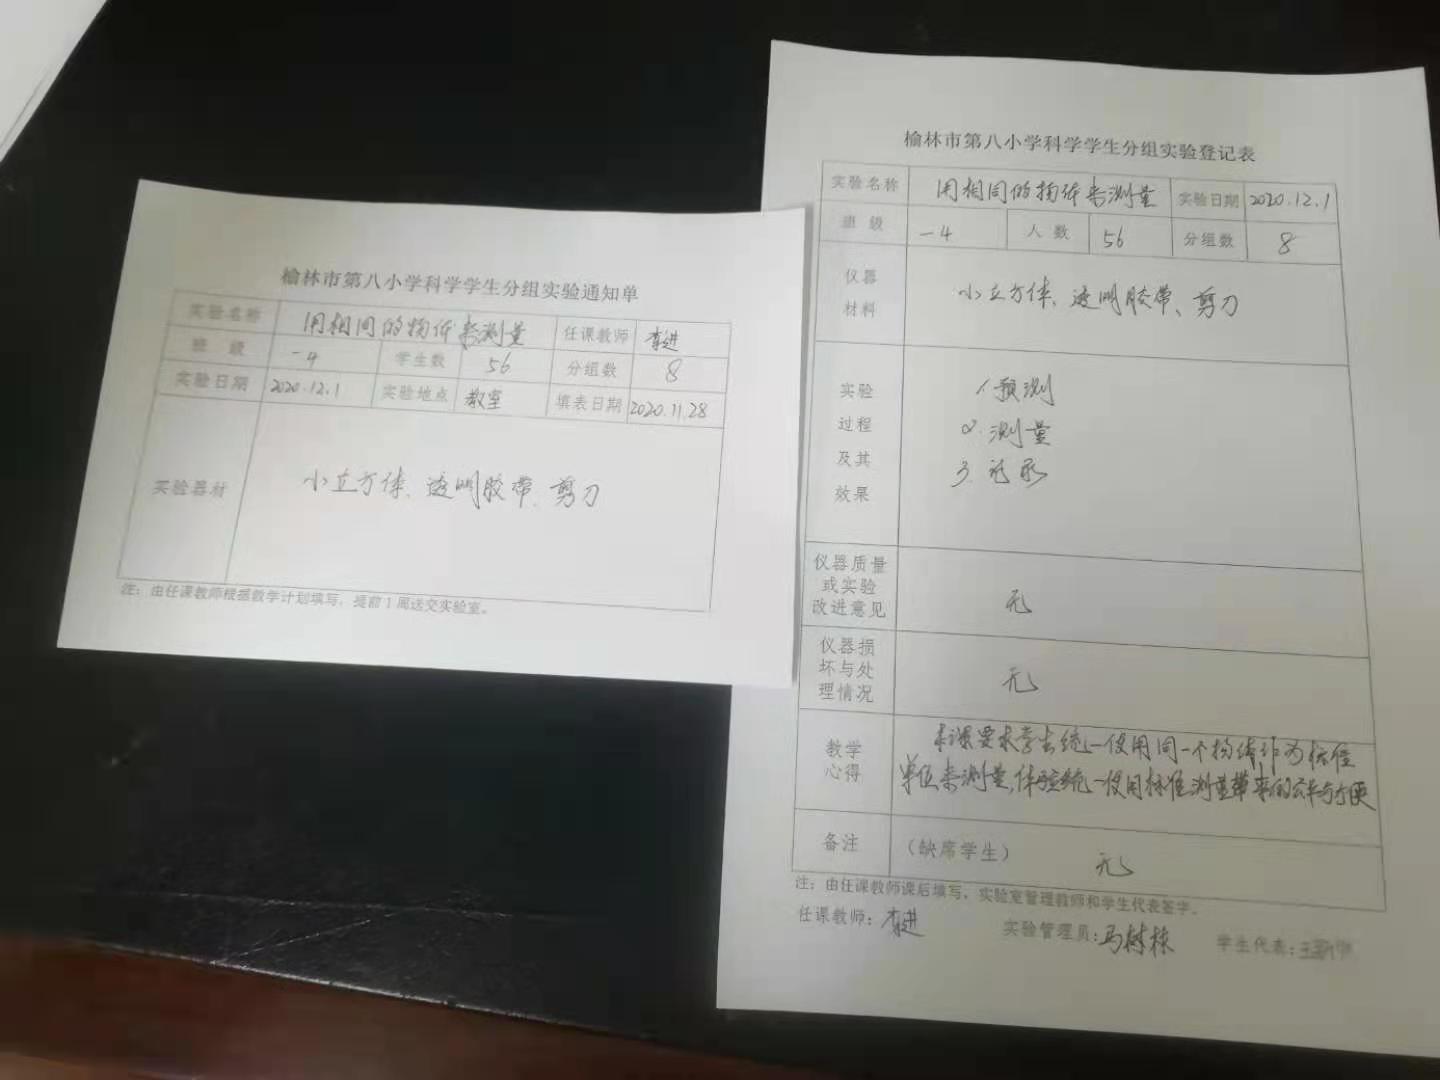 榆林市第八小学科学学生分组实验通知单
实验名称 用相同的物体来测量 任课教师 李进
班 级 一4 学生数 56 分组数 8
实验日期 2020.12.1 实验地点 教室 填表日期 2020.11.28
实验器材 小立方体、透明胶带、剪刀
注：由任课教师根据教学计划填写，提前1周送交实验室。
榆林市第八小学科学学生分组实验登记表
实验名称 用相同的物体来测量 实验日期 2020.12.1
班 级 一4 人 数 56 分组数 8
仪器
材料
小立方体、透明胶带、剪刀
实验
过程
及其
效果
1.预测
2.测量
3.记录
仪器质量
或实验
改进意见
无
仪器损
坏与处
理情况
无
教学
心得
本课要求学生统一使用同一个物体作为标准
单位来测量，体验统一使用标准测量带来的公平与方便
备注 （缺席学生） 无
注：由任课教师课后填写，实验室管理教师和学生代表签字。
任课教师：李进 实验管理员：马树栋 学生代表：